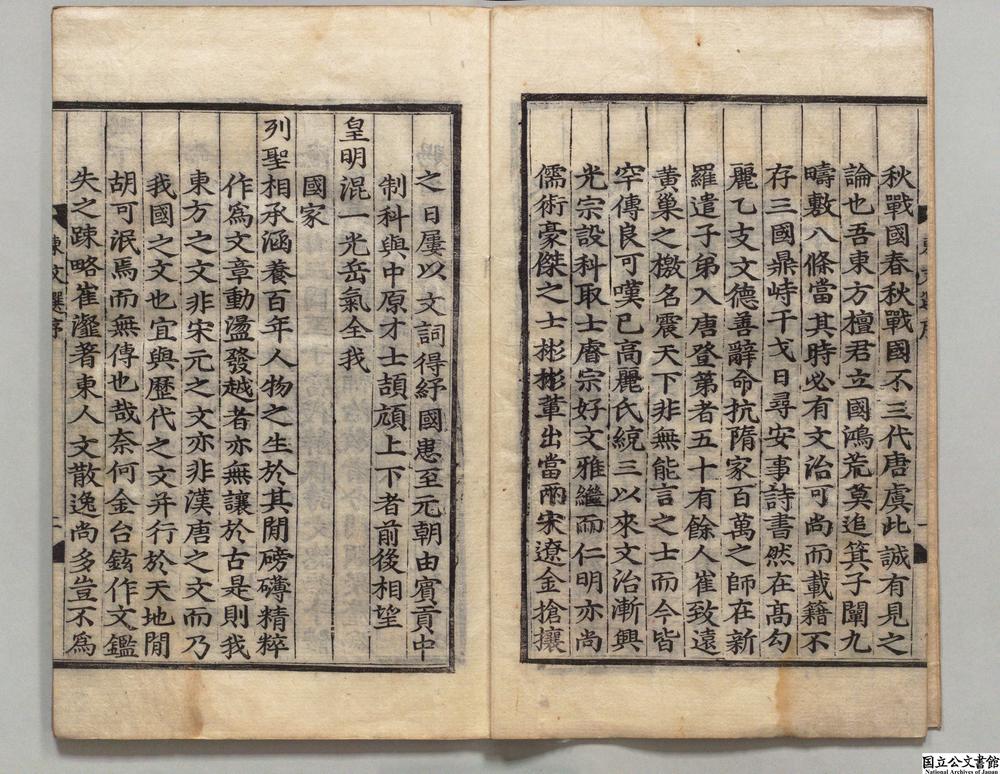 秋戰國春秋戰國不三代唐虞此誠有見之
論也吾東方檀君立國鴻荒莫追箕子闡九
疇敷八條當其時必有文治可尚而載籍不
存三國鼎峙干戈日尋安事詩書然在髙勾
麗乙支文德善辭命抗隋家百萬之師在新
羅遣子弟入唐登第者五十有餘人崔致遠
黄巢之檄名震天下非無能言之士而今皆
罕傳良可嘆已高麗氏統三以來文治漸興
光宗設科取士睿宗好文雅繼而仁明亦尚
儒術豪傑之士彬彬軰出當兩宋遼金搶攘
之日屢以文詞得紓國患至元朝由賓貢中
制科與中原才士頡頏上下者前後相望
皇明混一光岳氣全我
國家
列聖相承涵養百年人物之生於其閒磅礴精粹
作爲文章動盪發越者亦無讓於古是則我
東方之文非宋元之文亦非漢唐之文而乃
我國之文也宜與歷代之文幷行於天地閒
胡可泯焉而無傳也哉奈何金台鉉作文鑑
失之踈略崔瀣著東人文散逸尚多豈不爲
東文選序
二
国立公文書館
National Archives of Japan